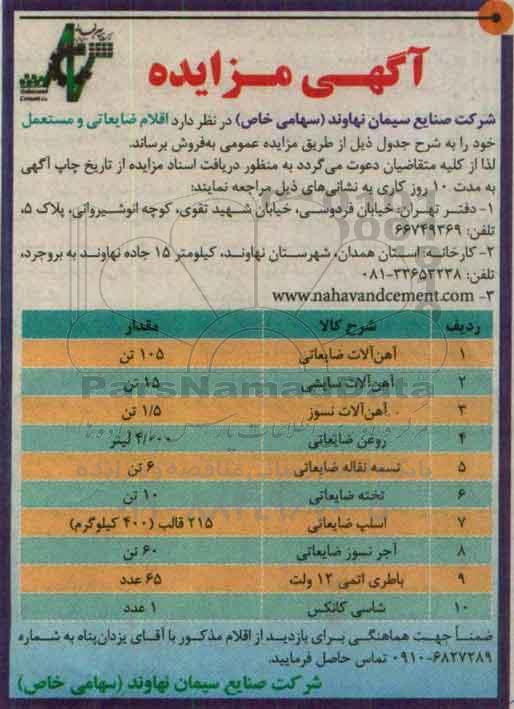 آگهی مزایده
شرکت صنایع سیمان نهاوند (سهامی خاص) در نظر دارد اقلام ضایعاتی و مستعمل
خود را به شرح جدول ذیل از طریق مزایده عمومی به‌فروش برساند.
لذا از کلیه متقاضیان دعوت می‌گردد به منظور دریافت اسناد مزایده از تاریخ چاپ آگهی
به مدت ۱۰ روز کاری به نشانی‌های ذیل مراجعه نمایند:
۱- دفتر تهران: خیابان فردوسی، خیابان شهید تقوی، کوچه انوشیروانی، پلاک ۵،
تلفن: ۶۶۷۴۹۳۶۹
۲- کارخانه: استان همدان، شهرستان نهاوند، کیلومتر ۱۵ جاده نهاوند به بروجرد،
تلفن: ۳۳۶۵۳۲۳۸-۰۸۱
۳- www.nahavandcement.com
ردیف شرح کالا مقدار
۱ آهن‌آلات ضایعاتی ۱۰۵ تن
۲ آهن‌آلات سایشی ۱۵ تن
۳ آهن‌آلات نسوز ۱/۵ تن
۴ روغن ضایعاتی ۴/۰۰۰ لیتر
۵ تسمه نقاله ضایعاتی ۶ تن
۶ تخته ضایعاتی ۱۰ تن
۷ اسلپ ضایعاتی ۲۱۵ قالب (۴۰۰ کیلوگرم)
۸ آجر نسوز ضایعاتی ۶۰ تن
۹ باطری اتمی ۱۲ ولت ۶۵ عدد
۱۰ شاسی کانکس ۱ عدد
ضمناً جهت هماهنگی برای بازدید از اقلام مذکور با آقای یزدان‌پناه به شماره
۶۸۲۷۲۸۹-۰۹۱۰ تماس حاصل فرمایید.
شرکت صنایع سیمان نهاوند (سهامی خاص)
ParsNamadData